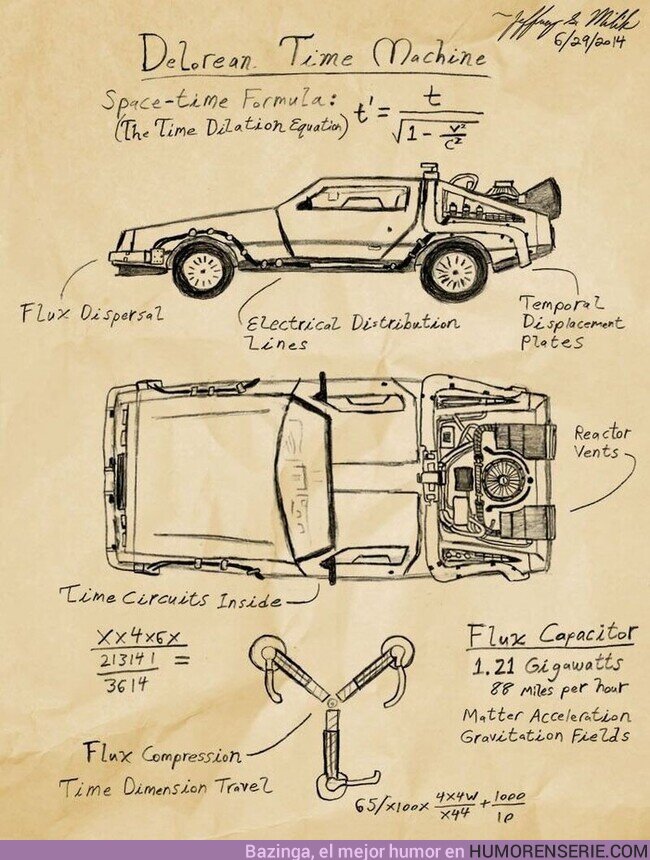 ~Jeffrey S. Milik
6/29/2014
DeLorean Time Machine
Space-time Formula:
(The Time Dilation Equation)
t' = t / √1 - v²/c²
Flux Dispersal
Electrical Distribution
Lines
Temporal
Displacement
Plates
Reactor
Vents
Time Circuits Inside
X x 4 x 6 x
213141 =
3614
Flux Capacitor
1.21 Gigawatts
88 miles per hour
Matter Acceleration
Gravitation Fields
Flux Compression
Time Dimension Travel
4x4W + 1000
x44 10
Bazinga, el mejor humor en HUMORENSERIE.COM